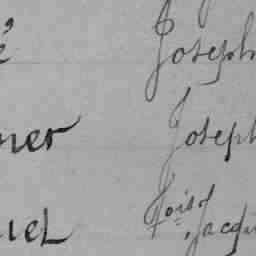 é Joseph
ner Joseph
uel Fois Jacqu